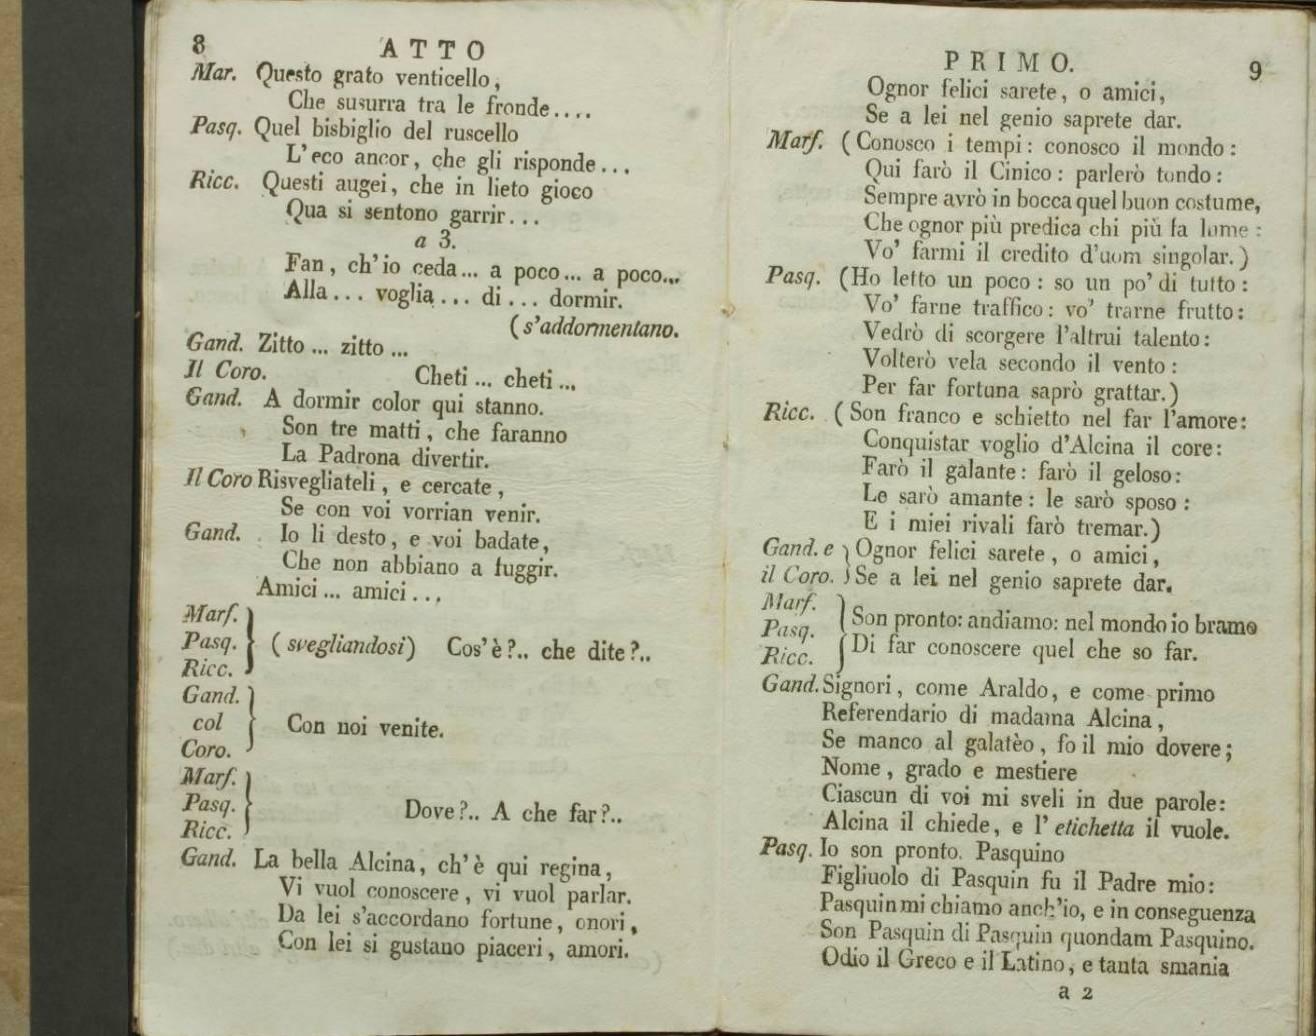 8 ATTO
Mar. Questo grato venticello,
Che susurra tra le fronde....
Pasq. Quel bisbiglio del ruscello
L'eco ancor, che gli risponde...
Ricc. Questi augei, che in lieto gioco
Qua si sentono garrir...
a 3.
Fan, ch'io ceda... a poco... a poco...
Alla... voglia... di... dormir.
(s'addormentano.
Gand. Zitto... zitto...
Il Coro. Cheti... cheti...
Gand. A dormir color qui stanno.
Son tre matti, che faranno
La Padrona divertir.
Il Coro Risvegliateli, e cercate,
Se con voi vorrian venir.
Gand. Io li desto, e voi badate,
Che non abbiano a fuggir.
Amici... amici...
Marf.
Pasq. } (svegliandosi) Cos'è?.. che dite?..
Ricc.
Gand.
col } Con noi venite.
Coro.
Marf.
Pasq. } Dove?.. A che far?..
Ricc.
Gand. La bella Alcina, ch'è qui regina,
Vi vuol conoscere, vi vuol parlar.
Da lei s'accordano fortune, onori,
Con lei si gustano piaceri, amori.
PRIMO. 9
Ognor felici sarete, o amici,
Se a lei nel genio saprete dar.
Marf. (Conosco i tempi: conosco il mondo:
Qui farò il Cinico: parlerò tondo:
Sempre avrò in bocca quel buon costume,
Che ognor più predica chi più fa lume:
Vo' farmi il credito d'uom singolar.)
Pasq. (Ho letto un poco: so un po' di tutto:
Vo' farne traffico: vo' trarne frutto:
Vedrò di scorgere l'altrui talento:
Volterò vela secondo il vento:
Per far fortuna saprò grattar.)
Ricc. (Son franco e schietto nel far l'amore:
Conquistar voglio d'Alcina il core:
Farò il galante: farò il geloso:
Le sarò amante: le sarò sposo:
E i miei rivali farò tremar.)
Gand. e ) Ognor felici sarete, o amici,
il Coro. ) Se a lei nel genio saprete dar.
Marf.
Pasq. } Son pronto: andiamo: nel mondo io bramo
Ricc. Di far conoscere quel che so far.
Gand. Signori, come Araldo, e come primo
Referendario di madama Alcina,
Se manco al galatèo, fo il mio dovere;
Nome, grado e mestiere
Ciascun di voi mi sveli in due parole:
Alcina il chiede, e l'etichetta il vuole.
Pasq. Io son pronto. Pasquino
Figliuolo di Pasquin fu il Padre mio:
Pasquin mi chiamo anch'io, e in conseguenza
Son Pasquin di Pasquin quondam Pasquino.
Odio il Greco e il Latino, e tanta smania
a 2